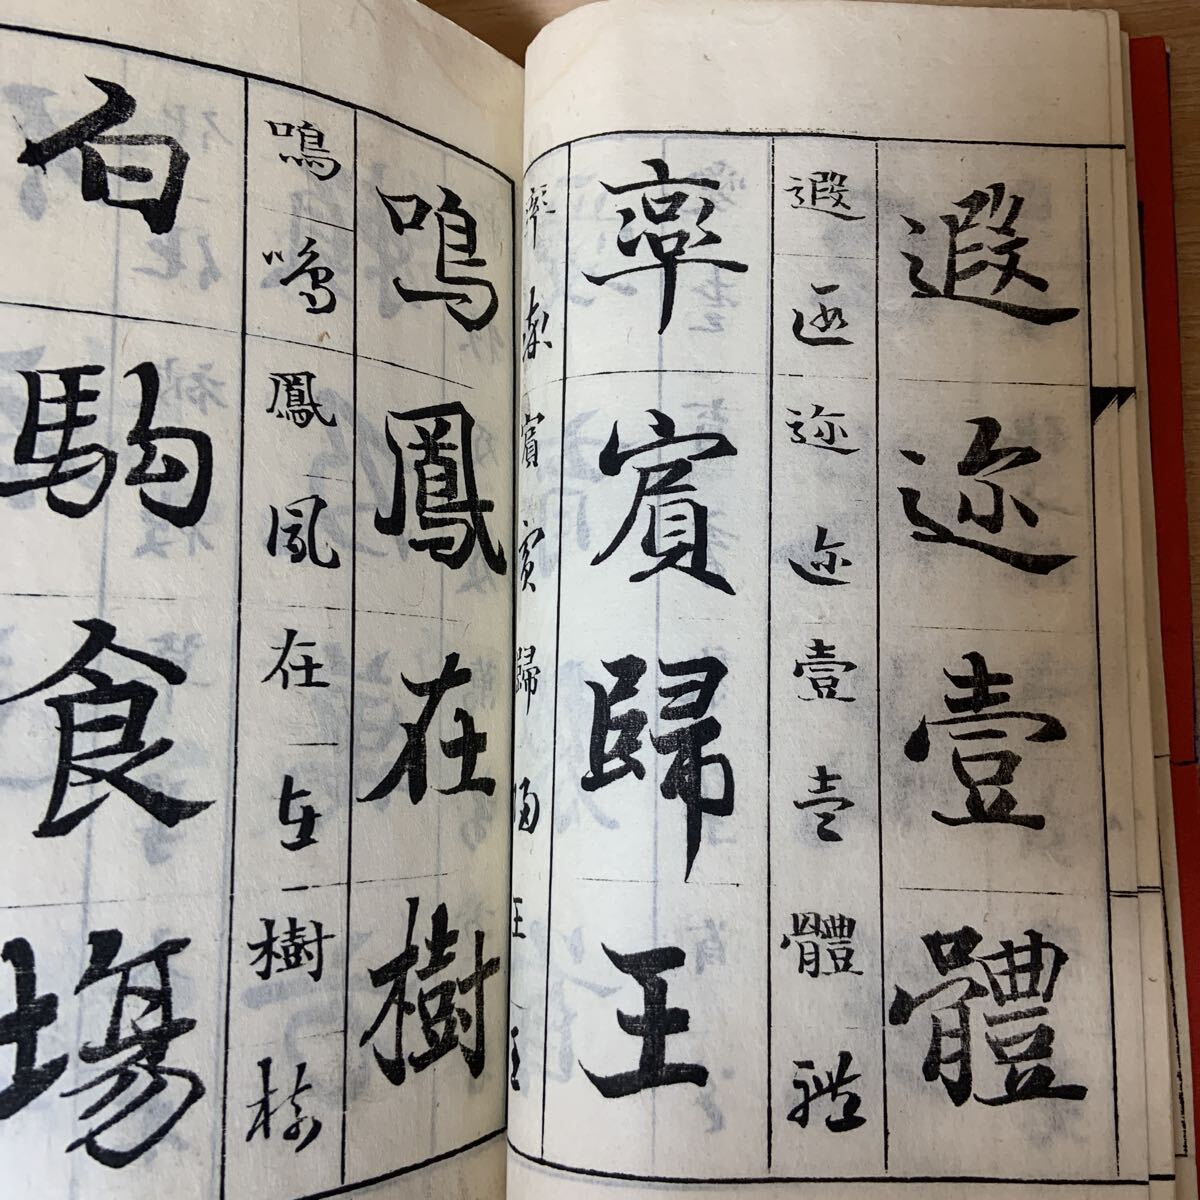 遐迩壹體
遐遐迩迩壹壹體軆
率賓歸王
率率賓賓歸歸王王
鳴鳳在樹
鳴鳴鳳鳳在在樹樹
白駒食場